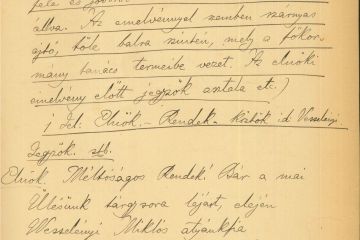 fele és jobbról
állva. Az emelvénnyel szemben szárnyas
ajtó, tőle balra szintén, mely a főkor-
mány tanács termeibe vezet. Az elnöki
emelvény előtt jegyzők asztala etc.)
Jel: Elnök. – Rendek. id Vesselényi
Jegyzők. stb.
Elnök. Méltóságos Rendek! Bár a mai
Ülésünk tárgysora lejárt, elején
Wesselényi Miklós atyánkfia